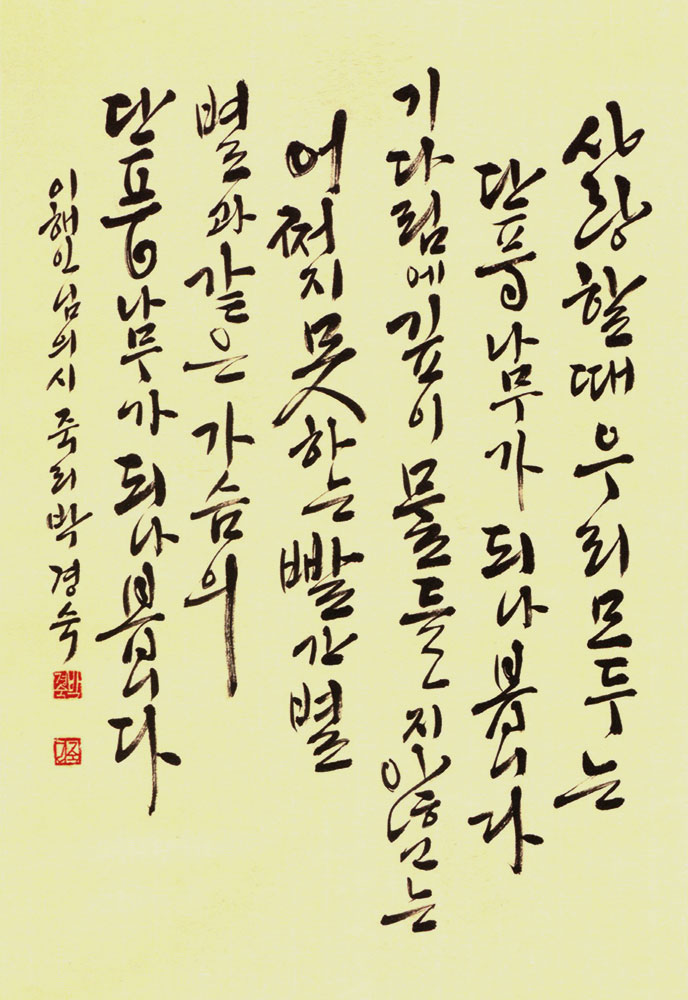 사랑할때 우리 모두는
단풍나무가 되나봅니다
기다림에 깊이 물들지 않고는
어쩌지 못하는 빨간 별
별과 같은 가슴의
단풍나무가 되나봅니다
이해인님의 시 죽리 박경숙